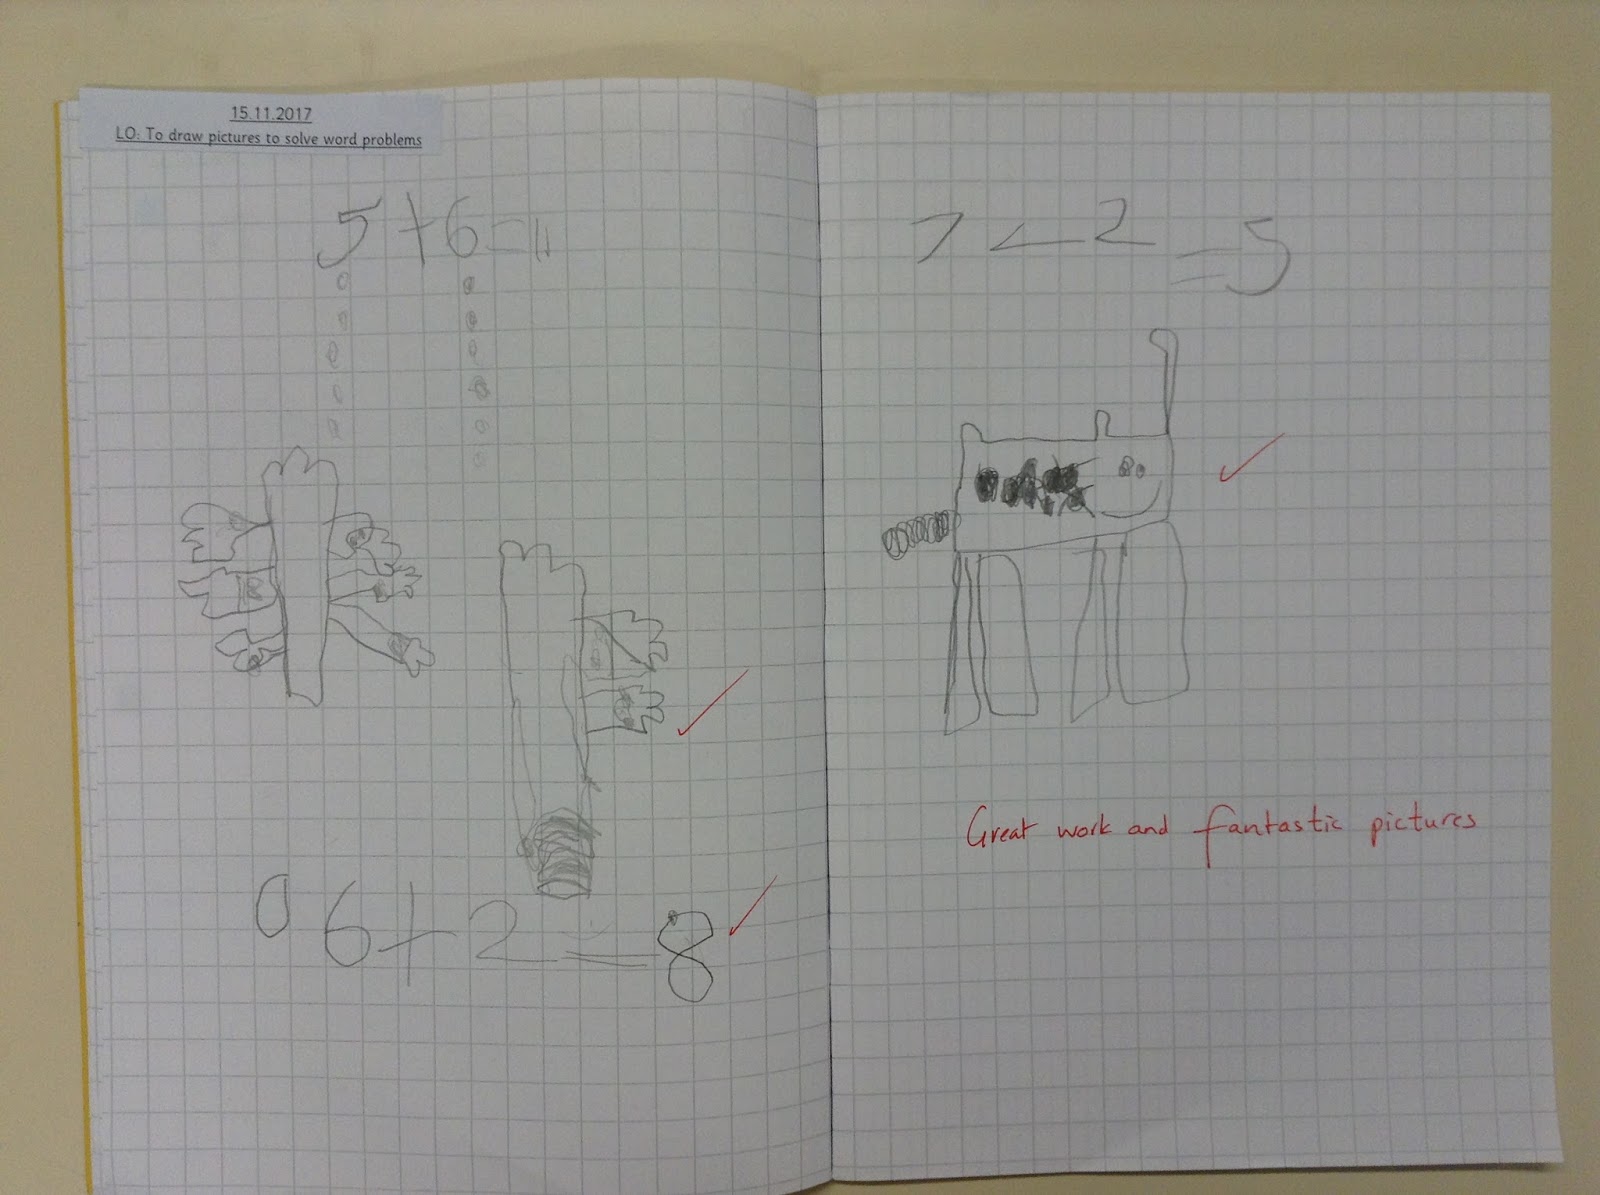 15.11.2017
LO: To draw pictures to solve word problems
5 + 6 = 11
6 + 2 = 8
7 - 2 = 5
Great work and fantastic pictures